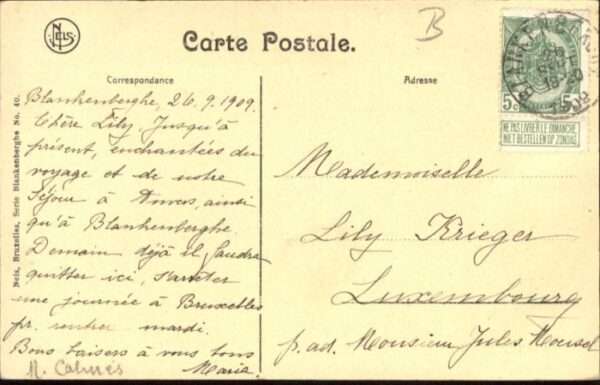 NELS
Carte Postale.
B
Correspondance
Adresse
Blankenberghe, 26.9.1909.
Chère Lily, Jusqu'à
présent, enchantées du
voyage et de notre
Séjour à Anvers, ainsi
qu'à Blankenberghe.
Demain déjà il faudra
quitter ici, s'arrêter
une journée à Bruxelles
pr. rentrer mardi.
Bons baisers à vous tous
Marie
Mademoiselle
Lily Krieger
Luxembourg
p. ad. Monsieur Jules
Nels, Bruxelles, Serie Blankenberghe No. 40.
BLANKENBERGHE
5c 5c
NE PAS LIVRER LE DIMANCHE
NIET BESTELLEN OP ZONDAG